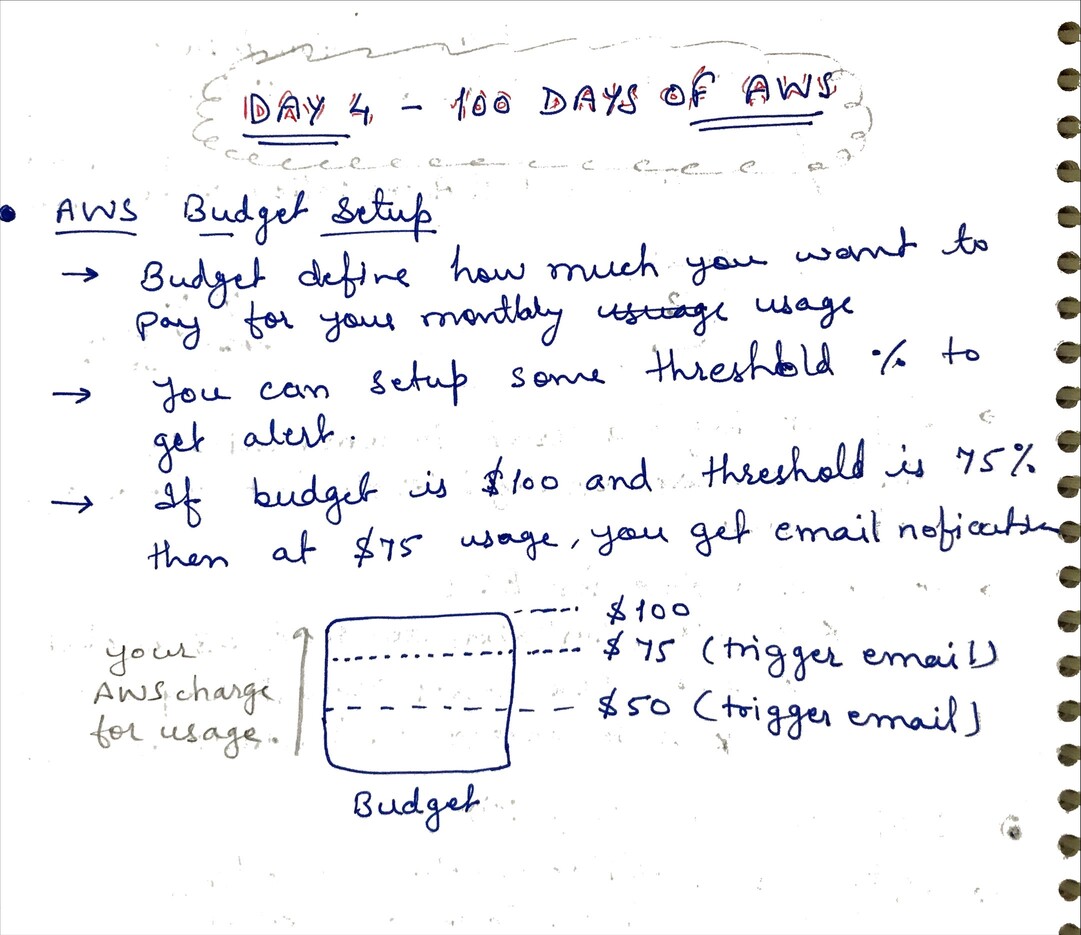 DAY 4 - 100 DAYS OF AWS
• AWS Budget Setup
→ Budget define how much you want to
pay for your monthly usage
→ You can setup some threshold % to
get alert.
→ If budget is $100 and threshold is 75%
then at $75 usage, you get email nofication
$100
$75 (trigger email)
$50 (trigger email)
your
AWS charge
for usage.
Budget